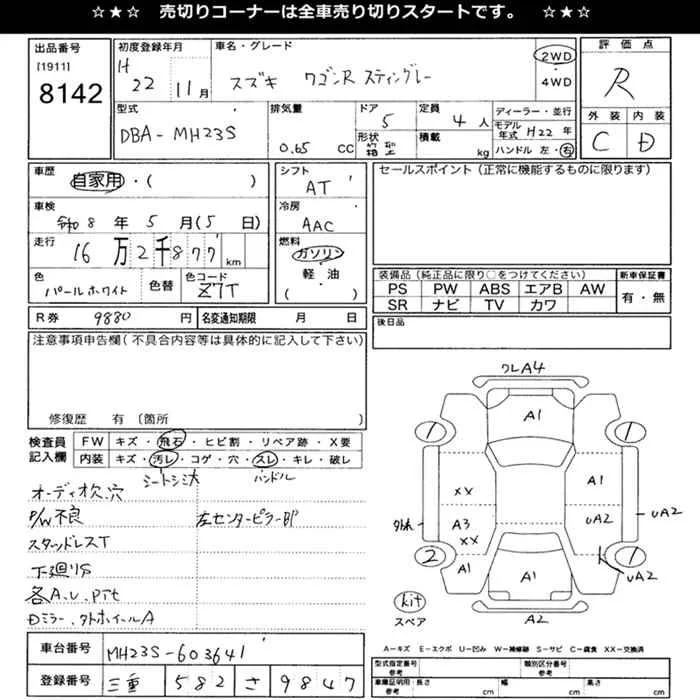 ☆★☆ 売切りコーナーは全車売り切りスタートです。 ☆★☆
出品番号
[1911]
8142
初度登録年月
H 22年 11月
車名・グレード
スズキ ワゴンR スティングレー
2WD
・
4WD
評価点
R
外装 内装
C D
型式
DBA-MH23S
排気量
0.65 CC
ドア
5
形状
箱型
定員
4人
積載
kg
ディーラー・並行
モデル年式 H22年
ハンドル 左・右
車歴
自家用・( )
車検
令和8年5月(5日)
走行
16万2千877km
色
パールホワイト
色替
色コード
Z7T
シフト
AT
冷房
AAC
燃料
ガソリン
軽・油
( )
セールスポイント(正常に機能するものに限ります)
装備品(純正品に限り○をつけてください)
PS PW ABS エアB AW
SR ナビ TV カワ
新車保証書
有・無
R券 9880円
名変通知期限 月 日
後日品
注意事項申告欄(不具合内容等は具体的に記入して下さい)
修復歴 有〔箇所
検査員記入欄
FW キズ・飛石・ヒビ割・リペア跡・X要
内装 キズ・汚レ・コゲ・穴・スレ・キレ・破レ
シートシミ大 ハンドル
オーディオ欠.穴
P/W不良
左センターピラーBP
スタッドレスT
下廻りS
各A.U.Pit
Dミラー.タトホイールA
車台番号
MH23S-603641
登録番号
三重 582 さ 9847
ワレA4
A1
1
1
XX
A1
A3
XX
UA2
UA2
2
1
A1
A1
UA2
A2
kit
スペア
A-キズ E-エクボ U-凹み W-補修跡 S-サビ C-腐食 XX-交換済
型式指定番号
参考
類別区分番号
参考
車庫証明用
参考
長さ cm
幅 cm
高さ cm